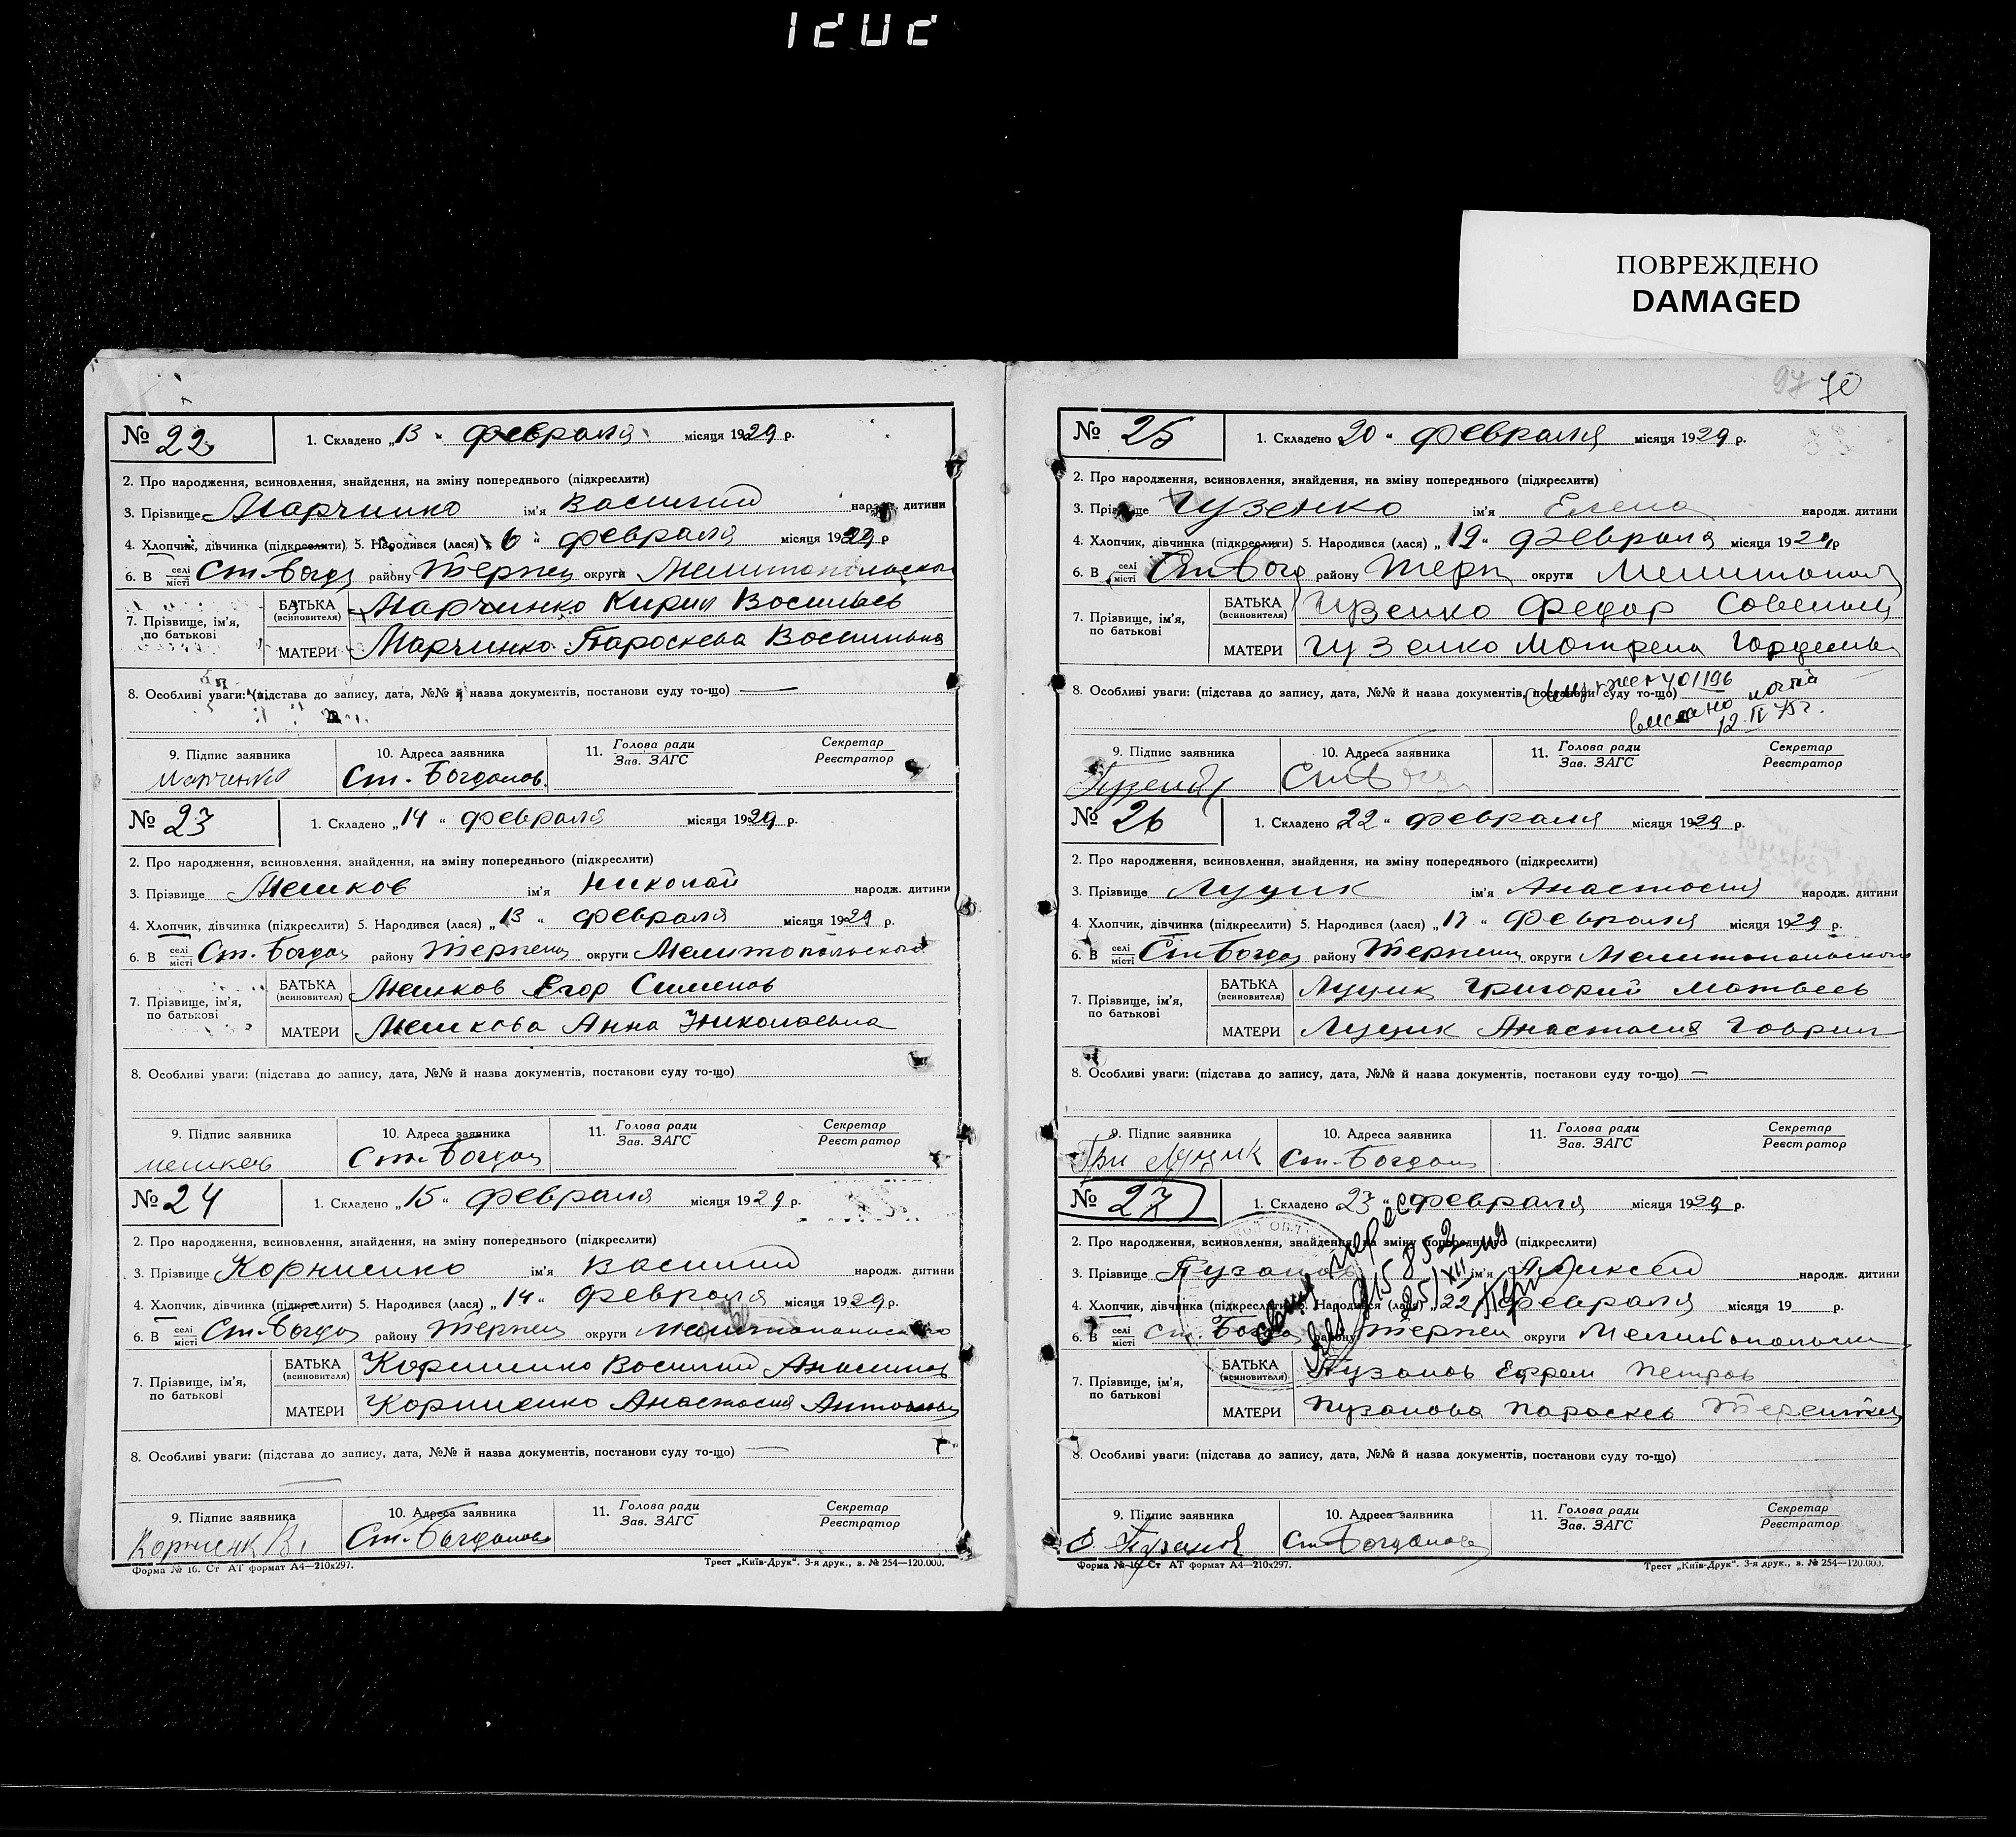 1202
ПОВРЕЖДЕНО
DAMAGED
№ 22
1. Складено „13“ февраля місяця 1929 р.
2. Про народження, всиновлення, знайдення, на зміну попереднього (підкреслити)
3. Прізвище Марчинко ім'я Василий народж. дитини
4. Хлопчик, дівчинка (підкреслити) 5. Народився (лася) „6“ февраля місяця 1929 р
6. В селі місті Ст. Богд району Терпен округи Мелитопольско
7. Прізвище, ім'я, по батькові
БАТЬКА (всиновителя) Марчинко Кирил Васильев
МАТЕРИ Марчинко Параскева Васильевна
8. Особливі уваги: (підстава до запису, дата, №№ й назва документів, постанови суду то-що) —
9. Підпис заявника 10. Адреса заявника 11. Голова ради Зав. ЗАГС Секретар Реєстратор
Марченко Ст. Богданов.
№ 23
1. Складено „14“ февраля місяця 1929 р.
2. Про народження, всиновлення, знайдення, на зміну попереднього (підкреслити)
3. Прізвище Мешков ім'я Николай народж. дитини
4. Хлопчик, дівчинка (підкреслити) 5. Народився (лася) „13“ февраля місяця 1929 р.
6. В селі місті Ст. Богдан району Терпен округи Мелитопольского
7. Прізвище, ім'я, по батькові
БАТЬКА (всиновителя) Мешков Егор Сименов
МАТЕРИ Мешкова Анна Николаевна
8. Особливі уваги: (підстава до запису, дата, №№ й назва документів, постанови суду то-що)
9. Підпис заявника 10. Адреса заявника 11. Голова ради Зав. ЗАГС Секретар Реєстратор
мешков Ст. Богдан
№ 24
1. Складено „15“ февраля місяця 1929 р.
2. Про народження, всиновлення, знайдення, на зміну попереднього (підкреслити)
3. Прізвище Корниенко ім'я Василий народж. дитини
4. Хлопчик, дівчинка (підкреслити) 5. Народився (лася) „14“ февраля місяця 1929 р.
6. В селі місті Ст. Богдан району Терпен округи Мелитопольского
7. Прізвище, ім'я, по батькові
БАТЬКА (всиновителя) Корниенко Василий
МАТЕРИ Корниенко Анастасия Антоновн
8. Особливі уваги: (підстава до запису, дата, №№ й назва документів, постанови суду то-що) —
9. Підпис заявника 10. Адреса заявника 11. Голова ради Зав. ЗАГС Секретар Реєстратор
Корниенк В. Ст. Богданов
Форма № 16. Ст АТ формат А4—210х297. Трест „Київ-Друк“. 3-я друк., з. № 254—120.000.
97 70
№ 25
1. Складено 20“ февраля місяця 1929 р.
2. Про народження, всиновлення, знайдення, на зміну попереднього (підкреслити)
3. Прізвище Гузенко ім'я Елена народж. дитини
4. Хлопчик, дівчинка (підкреслити) 5. Народився (лася) „19“ февраля місяця 1929 р
6. В селі місті Ст Богд району Терп округи Мелитопол
7. Прізвище, ім'я, по батькові
БАТЬКА (всиновителя) Гузенко Федор Савельев
МАТЕРИ Гузенко Матрена Гордеевн
8. Особливі уваги: (підстава до запису, дата, №№ й назва документів, постанови суду то-що)
401196
выслано почта
12 IV 75 г.
9. Підпис заявника 10. Адреса заявника 11. Голова ради Зав. ЗАГС Секретар Реєстратор
Ст Богд
№ 26
1. Складено „22“ февраля місяця 1929 р.
2. Про народження, всиновлення, знайдення, на зміну попереднього (підкреслити)
3. Прізвище Луцик ім'я Анастасия народж. дитини
4. Хлопчик, дівчинка (підкреслити) 5. Народився (лася) „17“ февраля місяця 1929 р.
6. В селі місті Ст Богдан району Терпени округи Мелитопольского
7. Прізвище, ім'я, по батькові
БАТЬКА (всиновителя) Луцик Григорий Матвеев
МАТЕРИ Луцик Анастасия Гаврил
8. Особливі уваги: (підстава до запису, дата, №№ й назва документів, постанови суду то-що) —
9. Підпис заявника 10. Адреса заявника 11. Голова ради Зав. ЗАГС Секретар Реєстратор
Гри Луцик Ст. Богдан
№ 27
1. Складено 23“ февраля місяця 1929 р.
2. Про народження, всиновлення, знайдення, на зміну попереднього (підкреслити)
3. Прізвище Пузанов ім'я Алексей народж. дитини
4. Хлопчик, дівчинка (підкреслити) 5. Народився (лася) „22“ февраля місяця 19 р.
6. В селі місті Ст. Богдан району Терпен округи Мелитопольски
7. Прізвище, ім'я, по батькові
БАТЬКА (всиновителя) Пузанов Ефрем Петров
МАТЕРИ Пузанова Параскев Терентьев
8. Особливі уваги: (підстава до запису, дата, №№ й назва документів, постанови суду то-що)
9. Підпис заявника 10. Адреса заявника 11. Голова ради Зав. ЗАГС Секретар Реєстратор
Е. Пузанов Ст. Богданов
Форма № 16. Ст АТ формат А4—210х297. Трест „Київ-Друк“. 3-я друк., з. № 254—120.000.